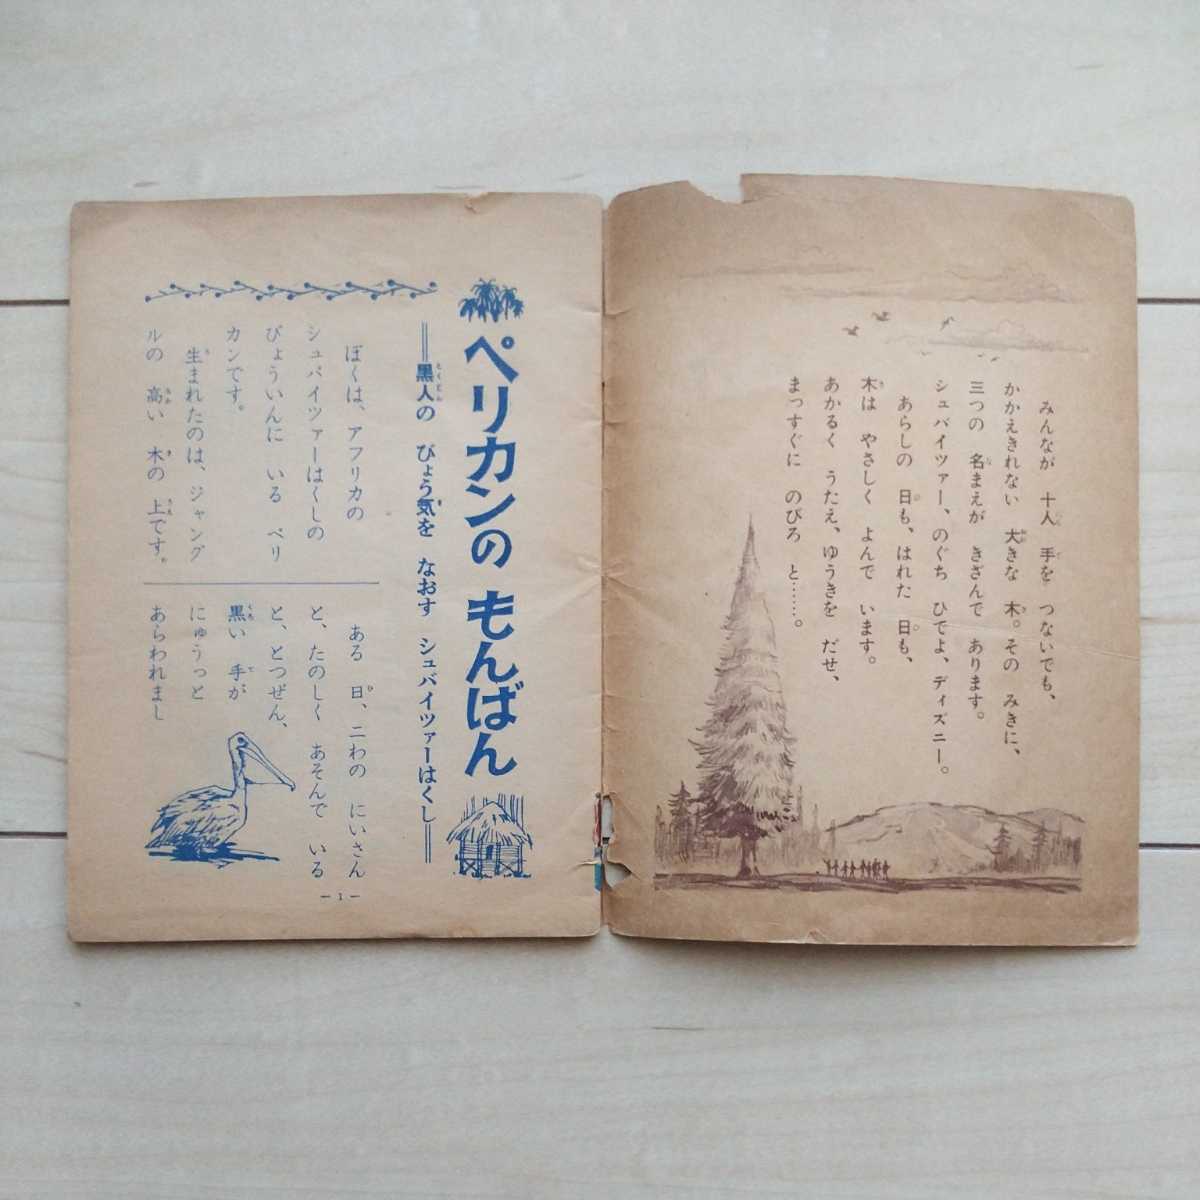 みんなが 十人 手を つないでも、
かかえきれない 大きな 木。その みきに、
三つの 名まえが きざんで あります。
シュバイツァー、のぐち ひでよ、ディズニー。
あらしの 日も、はれた 日も、
木は やさしく よんで います。
あかるく うたえ、ゆうきを だせ、
まっすぐに のびろ と……。
ペリカンの もんばん
＝黒人の びょう気を なおす シュバイツァーはくし＝
ぼくは、アフリカの
シュバイツァーはくしの
びょういんに いる ペリ
カンです。
生まれたのは、ジャング
ルの 高い 木の 上です。
ある 日、二わの にいさん
と、たのしく あそんで いる
と、とつぜん、
黒い 手が
にゅうっと
あらわれまし
— 1 —